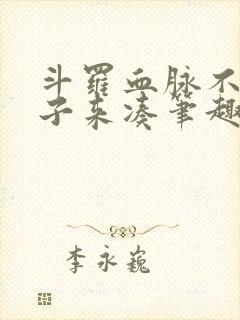 斗羅血脉不
子来凑筆趣
李永巍